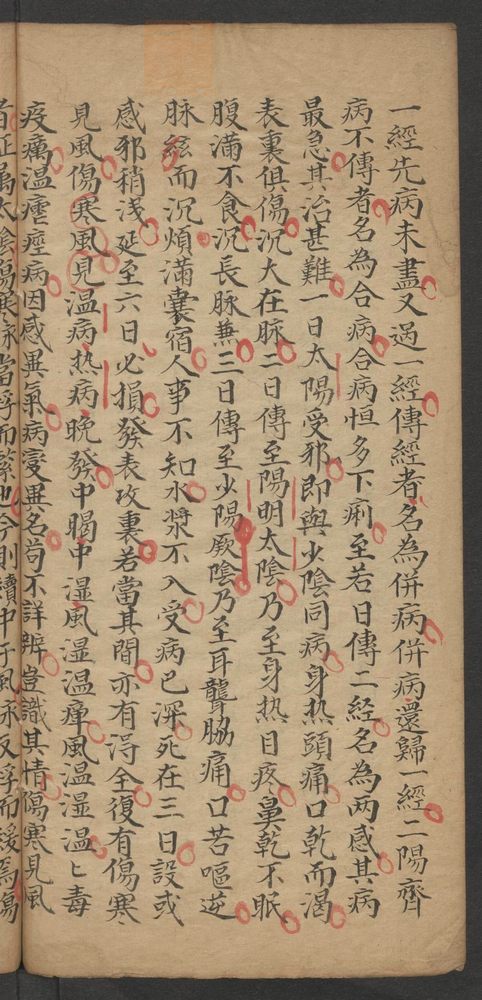 一經先病未盡又過一經傳經者名為併病併病還歸一經二陽齊
病不傳者名為合病合病恒多下痢至若日傳二經名為两感其病
最急其治甚難一日太陽受邪即與少陰同病身热頭痛口乾而渴
表裏俱傷沉大在脉二日傳至陽明太陰乃至身热日疼鼻乾不眠
腹滿不食沉長脉兼三日傳至少陽厥陰乃至耳聾脇痛口苦嘔逆
脉絃而沉煩滿囊宿人事不知水漿不入受病已深死在三日設或
感邪稍浅延至六日必損發表攻裏若當其間亦有淂全復有傷寒
見風傷寒風見温病热病晚發中暍中湿風湿温痺風温湿温七毒
疫癘温瘧痙病因感異氣病変異名苟不詳辨豈識其情傷寒見風
者証属太陰傷寒脉當浮而緊也今則續中于風脉反浮而緩焉傷